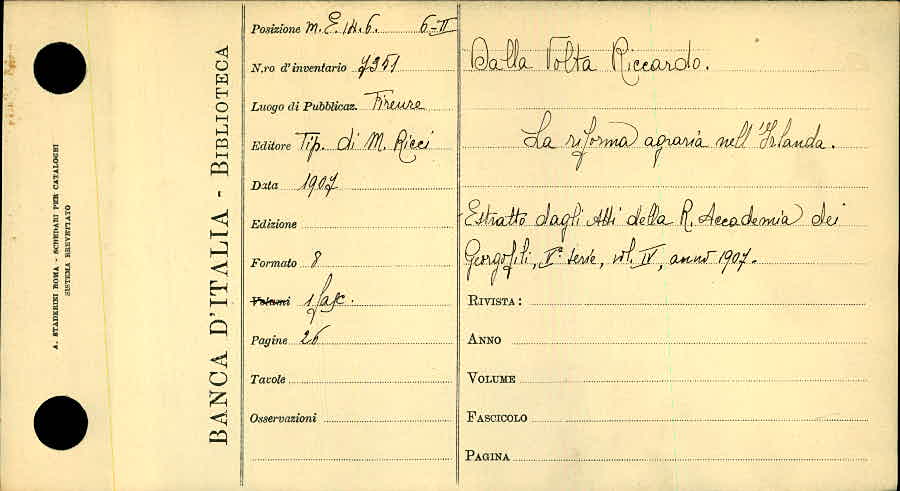 A. STADERINI ROMA - SCHEDARI PER CATALOGHI
SISTEMA BREVETTATO
BANCA D'ITALIA - BIBLIOTECA
Posizione M. E. 14. 6 6-II
N.ro d'inventario 7351
Luogo di Pubblicaz. Firenze
Editore Tip. di M. Ricci
Data 1907
Edizione
Formato 8
Volumi 1 fasc.
Pagine 26
Tavole
Osservazioni
Dalla Volta Riccardo.
La riforma agraria nell'Irlanda.
Estratto dagli Atti della R. Accademia dei
Georgofili, Vª serie, vol. IV, anno 1907.
RIVISTA:
ANNO
VOLUME
FASCICOLO
PAGINA